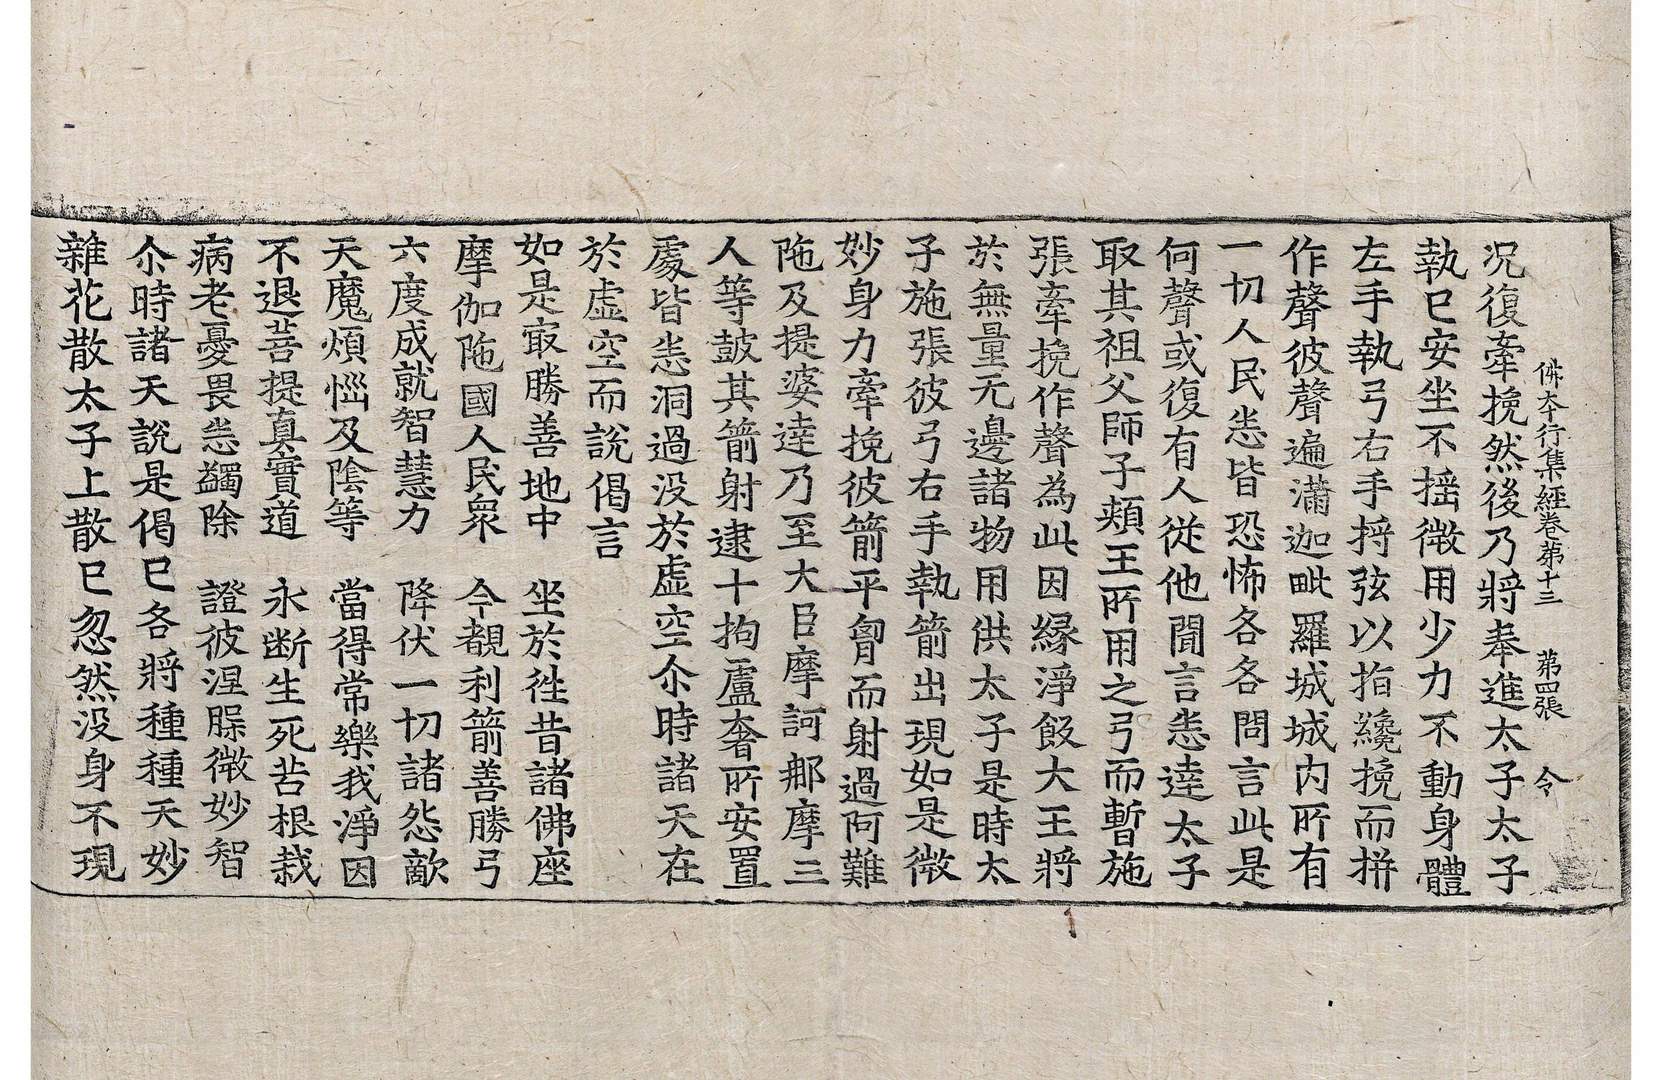 佛本行集經卷第十三 第四張 令
况復牽挽然後乃將奉進太子太子
執已安坐不摇微用少力不動身體
左手執弓右手捋弦以指纔挽而拼
作聲彼聲遍滿迦毗羅城城内所有
一切人民悉皆恐怖各各問言此是
何聲或復有人從他聞言悉達太子
取其祖父師子頰王所用之弓而暫施
張牽挽作聲為此因緣淨飯大王將
於無量无邊諸物用供太子是時太
子施張彼弓右手執箭出現如是微
妙身力牽挽彼箭平胷而射過阿難
陁及提婆達乃至大臣摩訶那摩三
人等皷其箭射逮十拘盧奢所安置
處皆悉洞過没於虛空尒時諸天在
於虛空而說偈言
如是㝡勝善地中 坐於往昔諸佛座
摩伽陁國人民衆 今覩利箭善勝弓
六度成就智慧力 降伏一切諸怨敵
天魔煩惱及陰等 當得常樂我淨因
不退菩提真實道 永斷生死苦根栽
病老憂畏悉蠲除 證彼涅槃微妙智
尒時諸天說是偈已各將種種天妙
雜花散太子上散已忽然没身不現